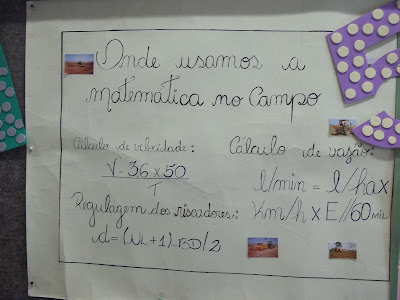 Onde usamos a
matemática no Campo
Cálculo de velocidade:
V = 36 x 50
T
Cálculo de vazão:
l/min = l/ha x
Km/h x E//60 mil
Regulagem dos riscadores:
d = (NL+1) - BD/2